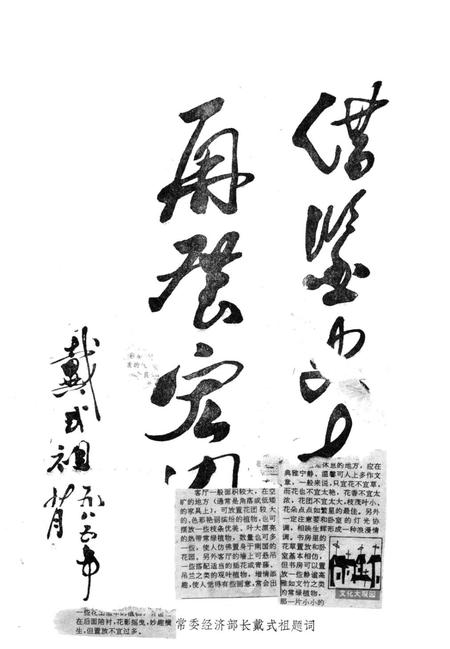 借鉴历史
再展宏
戴式祖
一九八五年
休息的地方，应在
典雅宁静、温馨可人上多作文
章。一般来说，只宜花不宜草，
而花也不宜太艳，花香不宜太
浓，花团不宜太大，枝茂叶小、
花朵点点如繁星的最佳。另外
一定注意要和卧室的灯光协
调，相映生辉形成一种浪漫情
调。书房里的
花草放置和卧
室基本相仿，
但书房可以放
置一些静谧高
雅如文竹之类
的常绿植物，
那一片小小的
文化大观园
客厅一般面积较大，在空
旷的地方（通常是角落或低矮
的家具上），可放置花团较大
的、色彩艳丽缤纷的植物，也可
摆放一些枝条优美、叶大漂亮
的热带常绿植物，数量也可多
一些，使人仿佛置身于南国的花
园。另外客厅的墙上可悬吊
一些搭配适当的插花或青藤、
吊兰之类的观叶植物，增情添
趣，使人觉得有些画意，常会出
在后面陪衬，花影摇曳，妙趣横
生，但置放不宜过多。
常委经济部长戴式祖题词